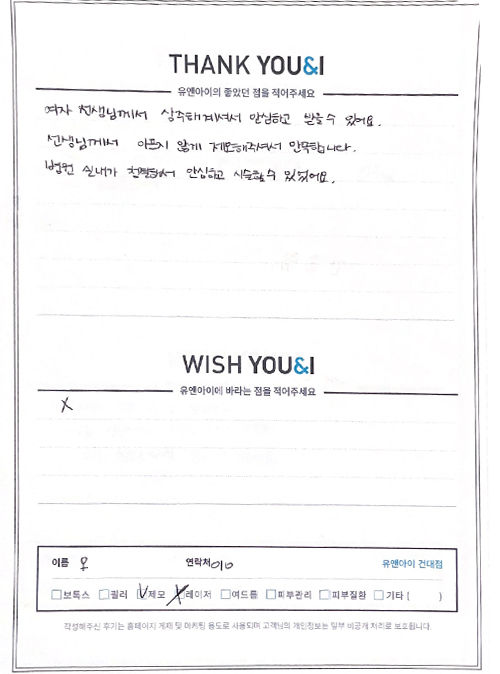 THANK YOU&I
유앤아이의 좋았던 점을 적어주세요
여자 선생님께서 상주해계셔서 안심하고 받을수 있어요.
선생님께서 아프지 않게 제모해주셔서 만족합니다.
병원 실내가 청결해서 안심하고 시술할수 있었어요.
WISH YOU&I
유앤아이에 바라는 점을 적어주세요
X
이름 우 연락처 010 유앤아이 건대점
보톡스 필러 제모 레이저 여드름 피부관리 피부질환 기타 ( )
작성해주신 후기는 홈페이지 게재 및 마케팅 용도로 사용되며 고객님의 개인정보는 일부 비공개 처리로 보호됩니다.